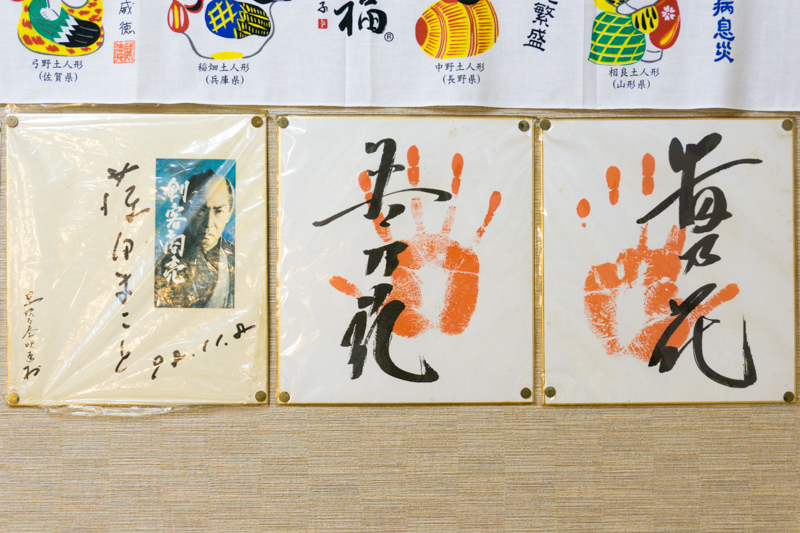 威徳
弓野土人形
(佐賀県)
稲畑土人形
(兵庫県)
子
福
®
中野土人形
(長野県)
繁盛
相良土人形
(山形県)
病息災
藤田まこと
98.11.8
剣客商売
若乃花
貴乃花